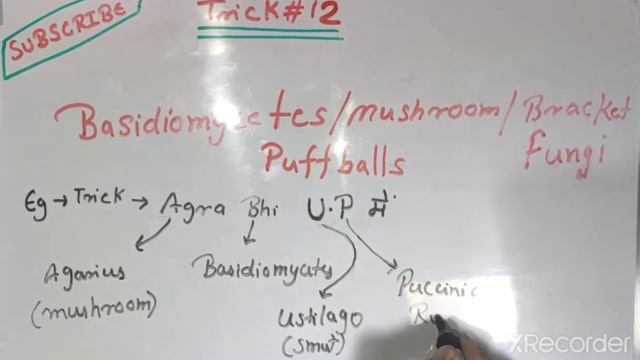 SUBSCRIBE
Trick#12
Basidiomycetes/mushroom/Bracket
Puffballs fungi
Eg → Trick → Agra Bhi U.P में
Agarius Basidiomycets Puccinic
(mushroom) Ustilago R
(smut)
XRecorder